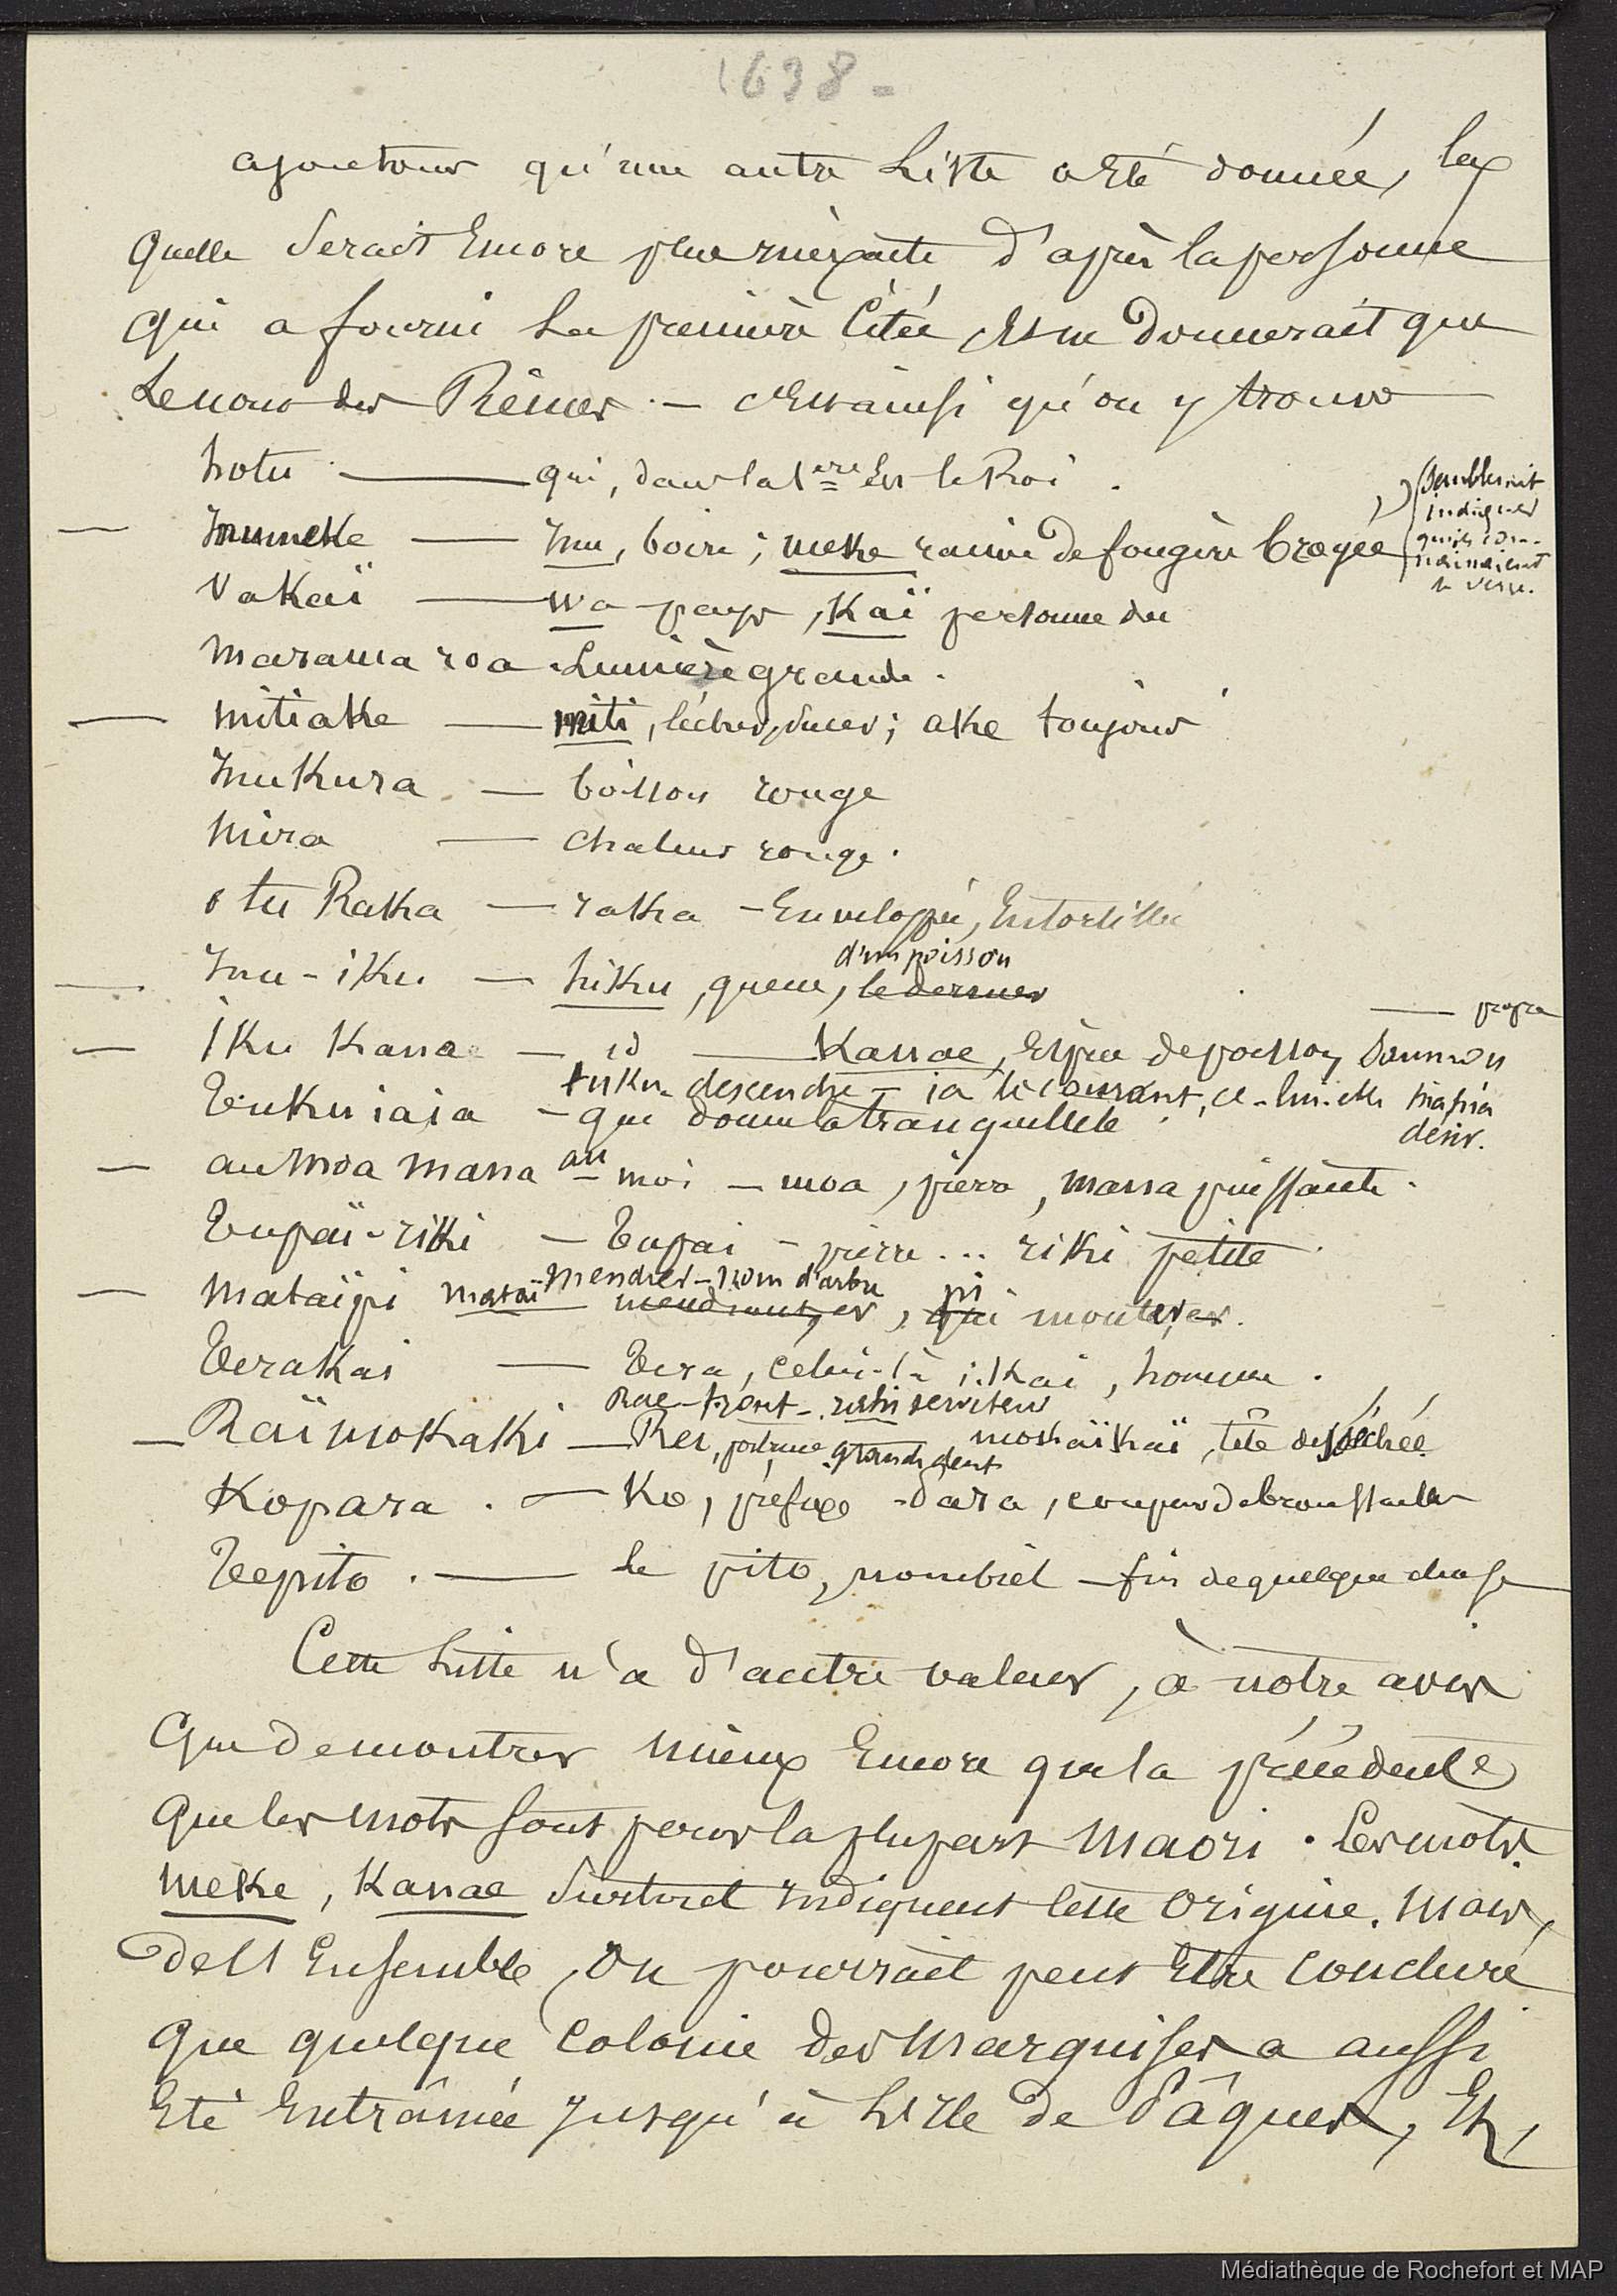 1638 -
ajoutons qu'une autre Liste a été donnée, la
quelle serait Encore plus inéxacte d'après la personne
qui a fourni la première Citée et ne donnerait que
Le nom des Reines. — C'est ainsi qu'on y trouve
hotu — qui, dans la 1ère Est le Roi.
— Inumeke — Inu, boire ; meke racine de fougère broyée
semblerait
indiquer
qu'ils con-
naissaient
Vakaï — wa pays, Kaï personne du
marama roa Lumière grande.
— mitiake — miti, lécher, sucer ; ake toujours
Inukura — boisson rouge
Mira — chaleur rouge.
o tu Raka — raka - Enveloppé, Entortillé
d'un poisson
— Inu - iku — hiku, queue, le dernier
— propre
— Iku Kanae — id — Kanae, Espèce de poisson
tuku descendre - ia le courant, ce - lui - elle
Tukuiaia — que donne la tranquillité
désir.
— au moa mana au - moi - moa, pierre, mana puissante.
Tupaï-riki — Tupai - pierre ... riki petite.
mendier - nom d'arbre pi
— mataïpi mataï mendiant, er, qui monter, er.
Terakai — Tera, celui-là ; Kai, homme.
Rae - front - serviteur
— Raïmokaki — Rei, poitrine grande dent mokaïkaï, tête desséchée
Kopara . — Ko, préfixe - para, couper des broussailles
Tepito . — le pito, nombril - fin de quelque chose
Cette Liste n'a d'autre valeur, à notre avis
Que de montrer mieux Encore que la précédente
Que les mots sont pour la plupart Maori . Les mots
meke, Kanae surtout indiquent cette Origine. Mais,
de l'Ensemble, On pourrait peut Etre conclure
Que quelque Colonie des Marquises a aussi
Eté Entrâinée Jusqu'à L'ile de Pâques, Et,
Médiathèque de Rochefort et MAP